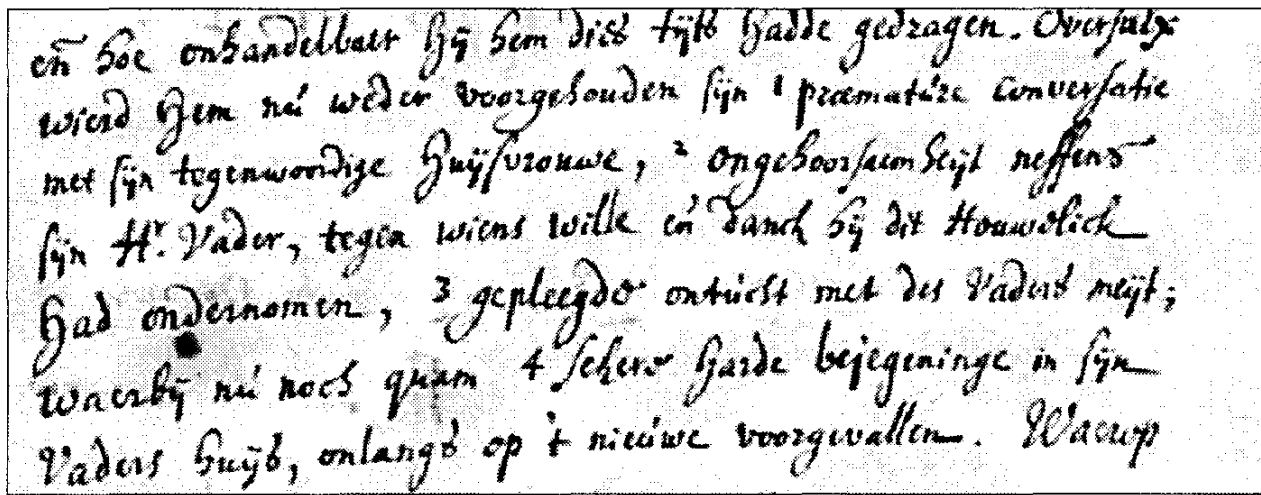 en̄ hoe onhandelbaer hij hem dies tijts hadde gedragen. Oversulx
wierd hem nú weder voorgehouden sijn 1 præmatúre conversatie
met sijn tegenwoordige huijsvrouwe, 2 ongehoorsaemheijt neffens
sijn Hr. Vader, tegen wiens wille en̄ danck hij dit Houwelick
had ondernomen, 3 gepleegde ontúcht met des Vaders meijt;
waerbij nú noch quam 4 sekere harde bejegeninge in sijn
Vaders huijs, onlangs op 't nieúwe voorgevallen. Waerop